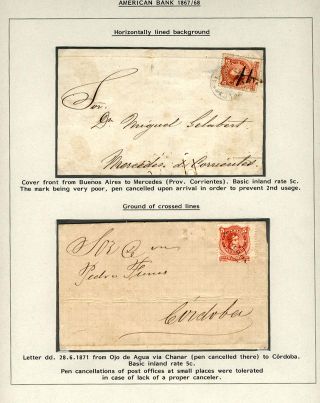 AMERICAN BANK 1867/68
Horizontally lined background
Sor.
Dn Miguel
Mercedes á Corrientes
Cover front from Buenos Aires to Mercedes (Prov. Corrientes). Basic inland rate 5c.
The mark being very poor, pen cancelled upon arrival in order to prevent 2nd usage.
Ground of crossed lines
Sor Dn
Pedro Funes
Córdoba
Letter dd. 28.6.1871 from Ojo de Agua via Chanar (pen cancelled there) to Córdoba.
Basic inland rate 5c.
Pen cancellations of post offices at small places were tolerated
in case of lack of a proper canceler.